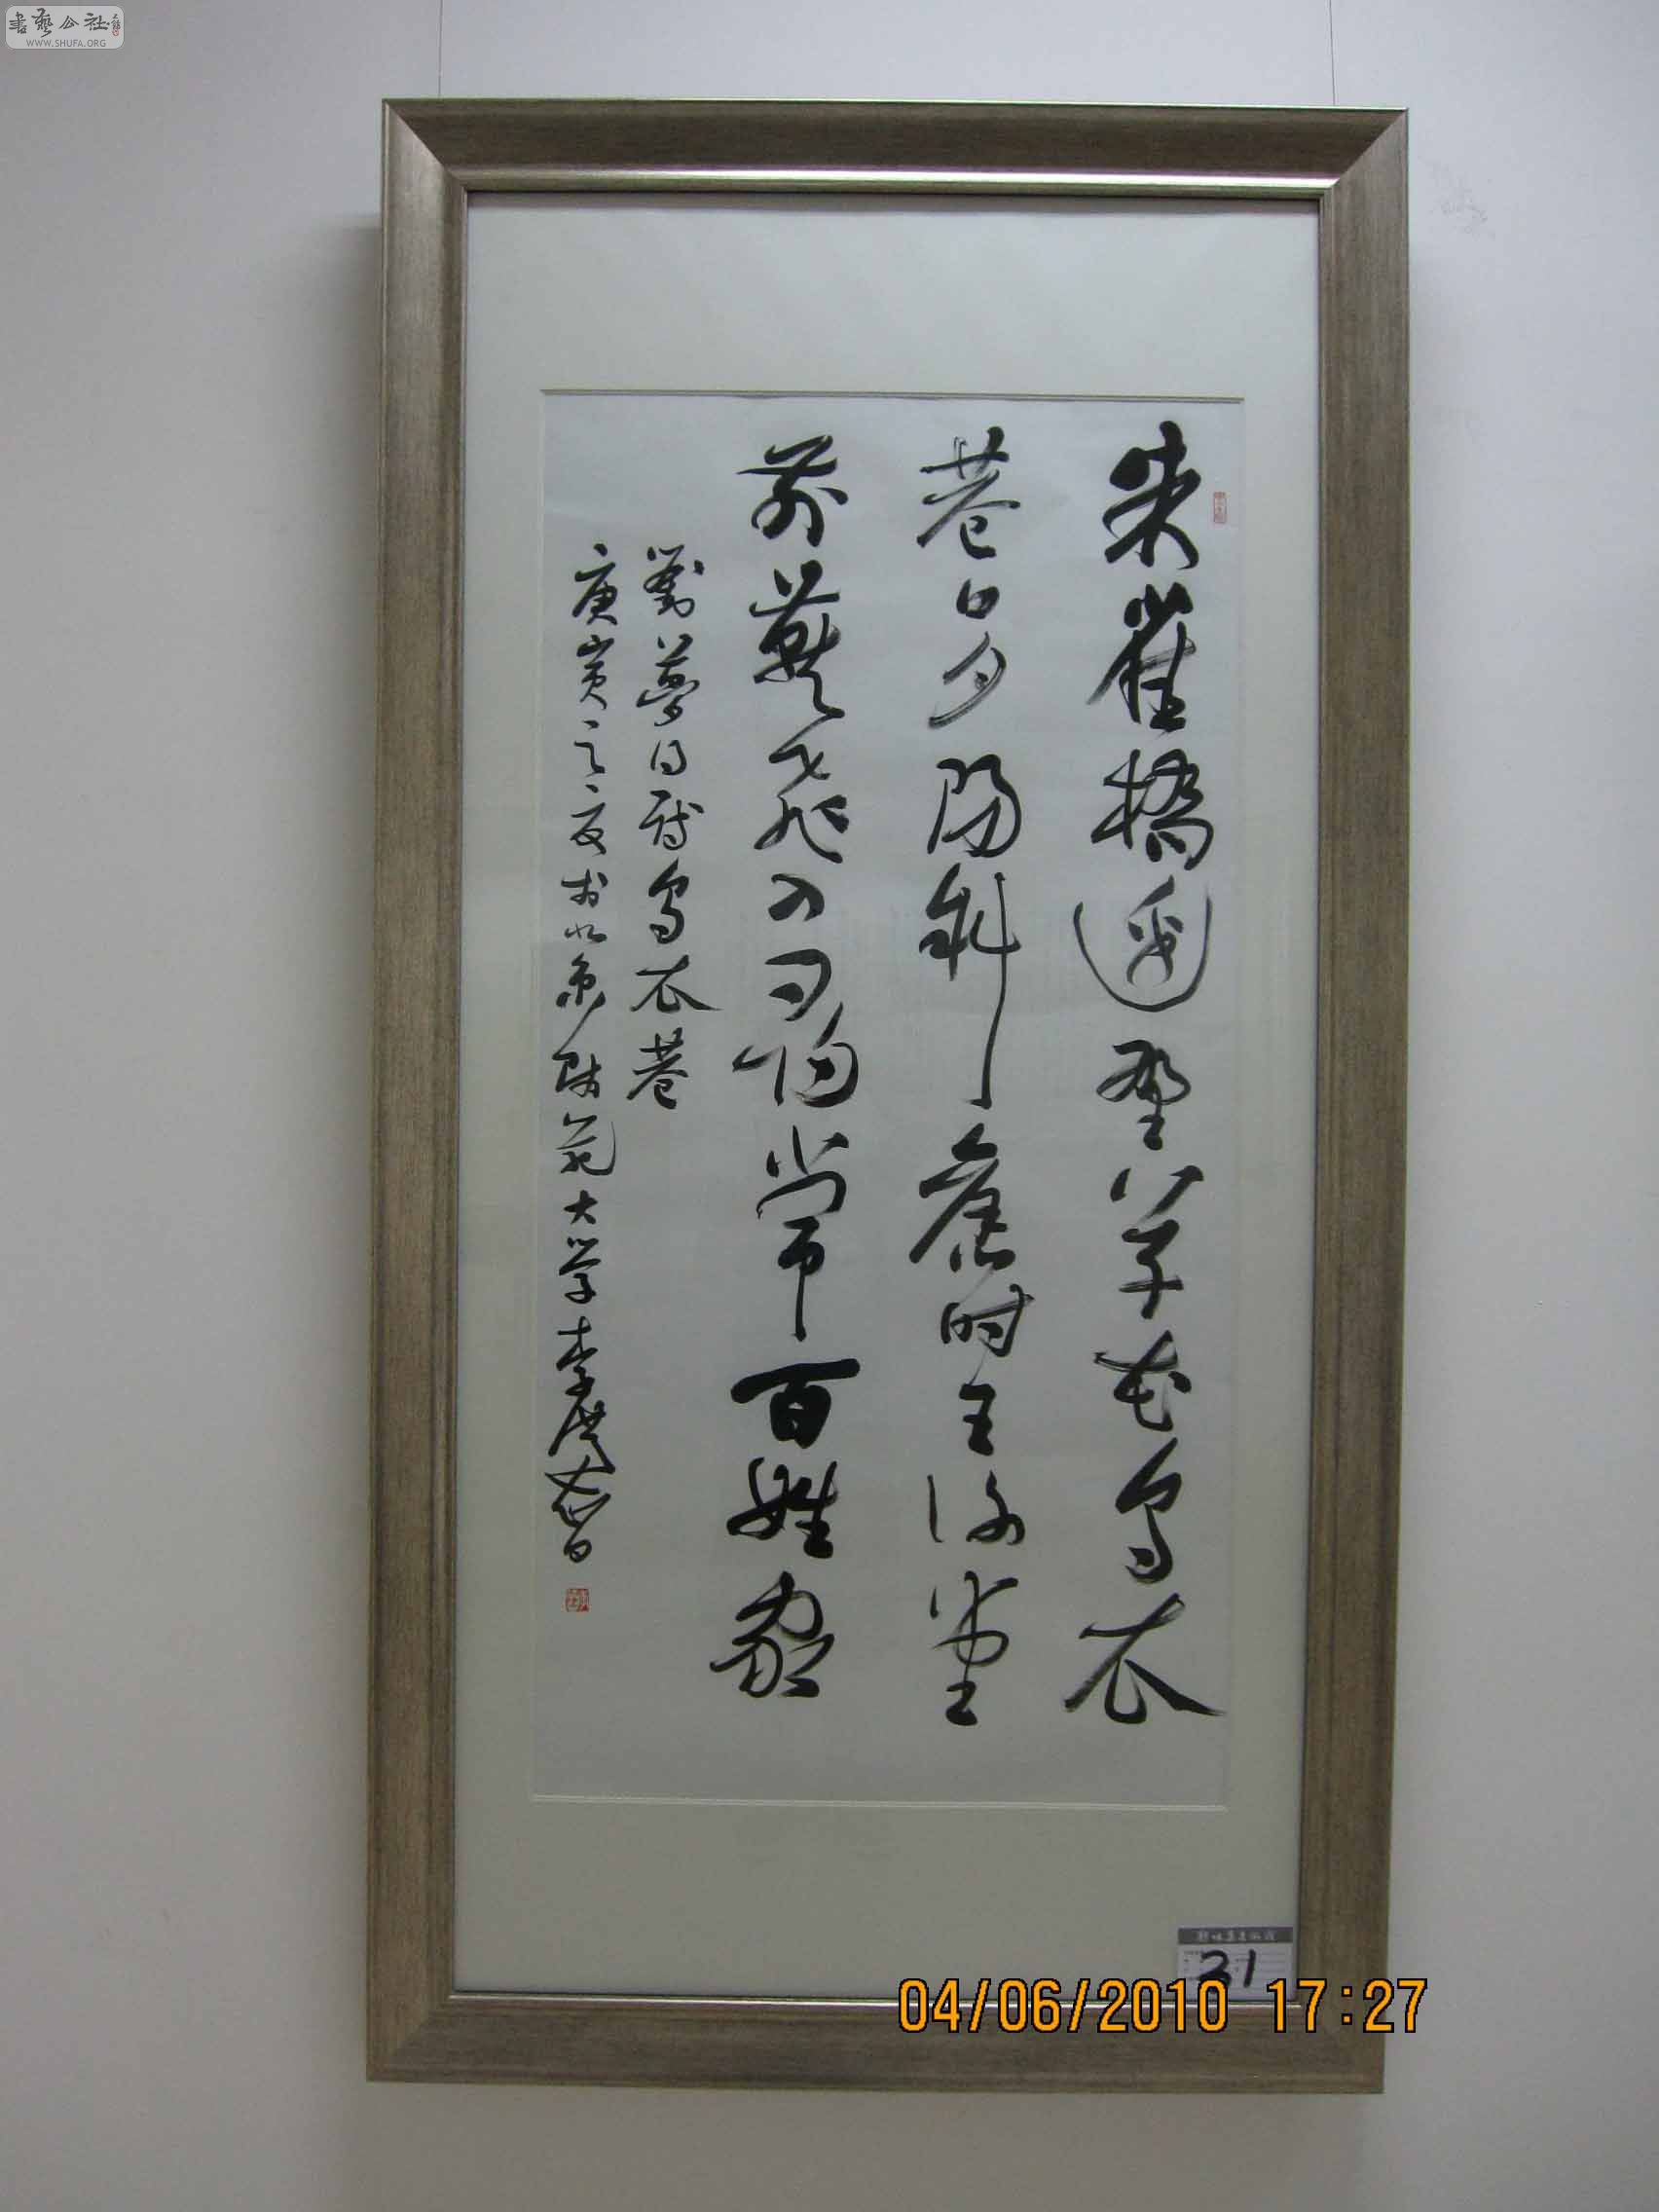 書藝公社
WWW.SHUFA.ORG
朱雀橋邊野草花烏衣
巷口夕陽斜舊時王謝堂
前燕飛入尋常百姓家
劉夢得詩烏衣巷
庚寅之夏於北京師範大学李洪智
31
04/06/2010 17:27